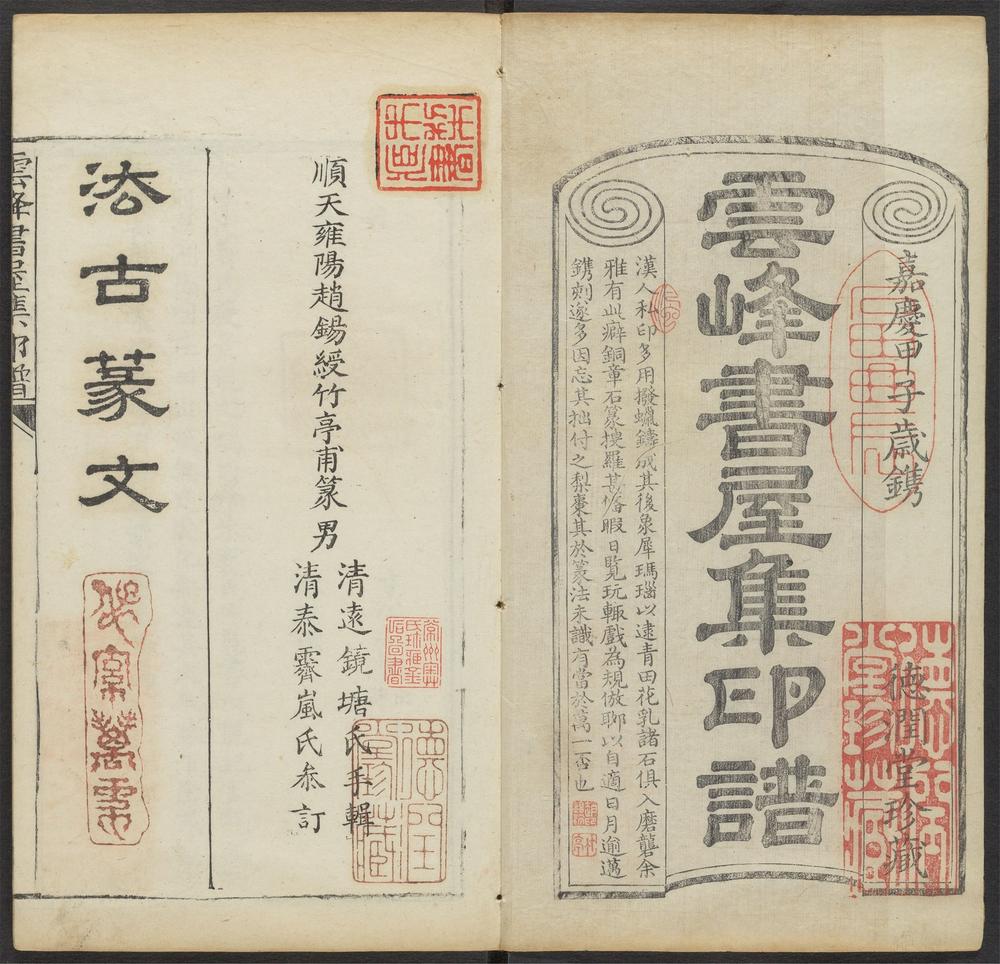 嘉慶甲子歲鐫
德潤堂珍藏
雲峰書屋集印譜
漢人私印多用撥蠟鑄成其後象犀瑪瑙以逮青田花乳諸石俱入磨礱余
雅有此癖銅章石篆搜羅甚俻暇日覽玩輒戲為規倣聊以自適日月逾邁
鐫刻遂多因忘其拙付之梨棗其於篆法未識有當於萬一否也
順天雍陽趙錫綬竹亭甫篆男
清遠鏡塘氏手輯
清泰霽嵐氏叅訂
法古篆文
雲峰書屋集印譜